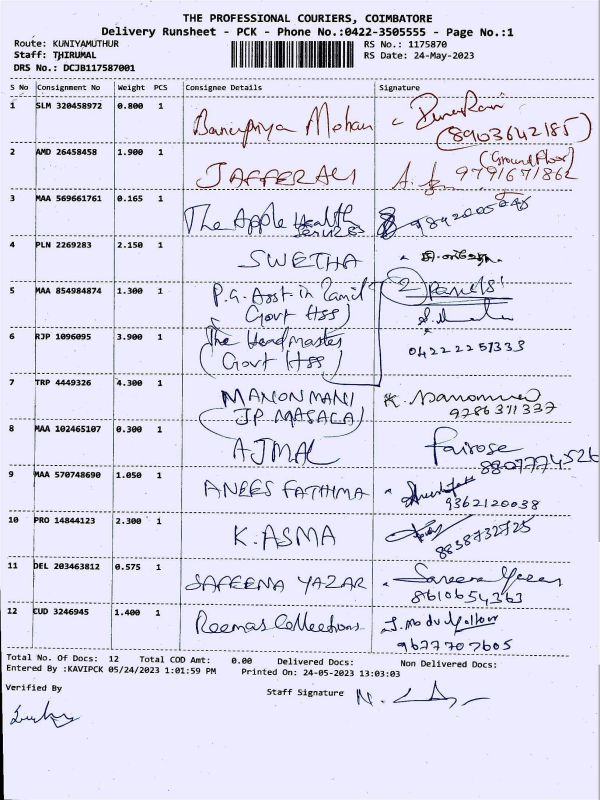 THE PROFESSIONAL COURIERS, COIMBATORE
Delivery Runsheet - PCK - Phone No.:0422-3505555 - Page No.:1
Route: KUNIYAMUTHUR RS No.: 1175870
Staff: THIRUMAL RS Date: 24-May-2023
DRS No.: DCJB117587001
S No Consignment No Weight PCS Consignee Details Signature
1 SLM 320458972 0.800 1 Mohan
(8903642185)
2 AMD 26458458 1.900 1 JAFFERALI (Ground Floor)
9791671862
3 MAA 569661761 0.165 1 The Apple Health
Services
4 PLN 2269283 2.150 1 SWETHA
5 MAA 854984874 1.300 1 P.G. Asst. in Tamil 2
(Govt HSS)
6 RJP 1096095 3.900 1 The Headmaster
(Govt HSS) 04222251333
7 TRP 4449326 4.300 1 MANONMANI K.
(JP MASALA) 9786311337
8 MAA 102465107 0.300 1 AJMAL Fairose
8807774526
9 MAA 570748690 1.050 1 ANEES FATHIMA
9362120038
10 PRO 14844123 2.300 1 K. ASMA
8838732725
11 DEL 203463812 0.575 1 SAFEENA YAZAR
8610654363
12 CUD 3246945 1.400 1 Reemas Collections
9677707605
Total No. Of Docs: 12 Total COD Amt: 0.00 Delivered Docs: Non Delivered Docs:
Entered By :KAVIPCK 05/24/2023 1:01:59 PM Printed On: 24-05-2023 13:03:03
Verified By Staff Signature